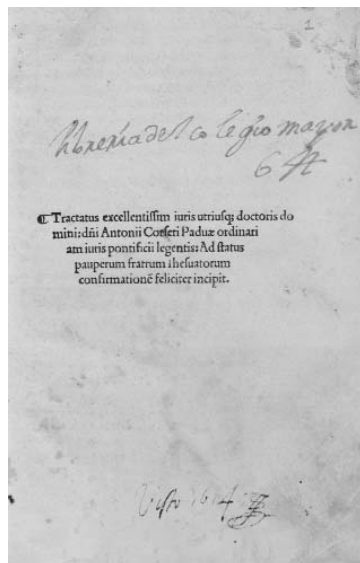 1
libreria del colegio mayor
64
❡ Tractatus excellentissim iuris utriusq; doctoris do
mini: dñi Antonii Corseti Paduæ ordinari
am iuris pontificii legentis: Ad status
pauperum fratrum Ihesuatorum
confirmationē feliciter incipit.
Visto 1614